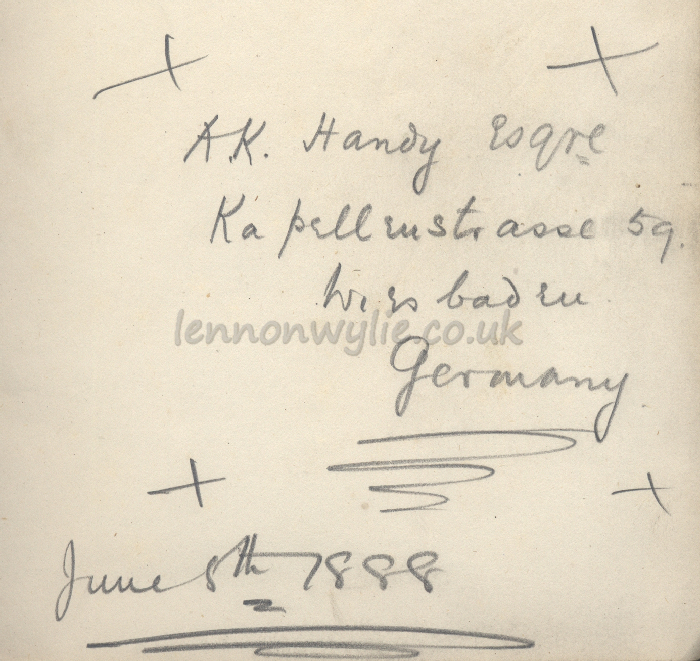 A.K. Handy Esqre
Kapellenstrasse 59.
Wiesbaden
lennonwylie.co.uk
Germany.
June 8th 1888